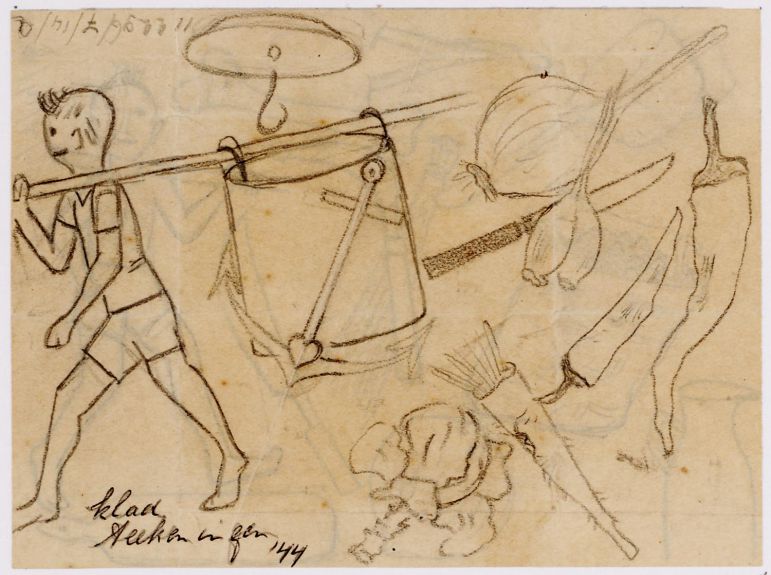 klad
teekeningen '44